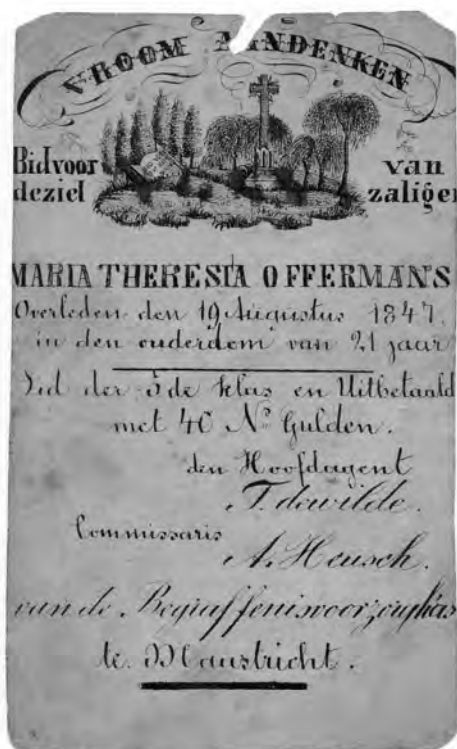 VROOM AANDENKEN
Bidvoor van
deziel zaliger
MARIA THERESIA OFFERMANS
Overleden den 19 Augustus 1847.
in den ouderdom van 21 jaar
Lid der 5de klas en Uitbetaald
met 40 Ns Gulden.
den Hoofdagent
T. dewilde.
Commissaris
A. Heusch.
van de Begraffenisvoorzorgkas
te Maastricht.